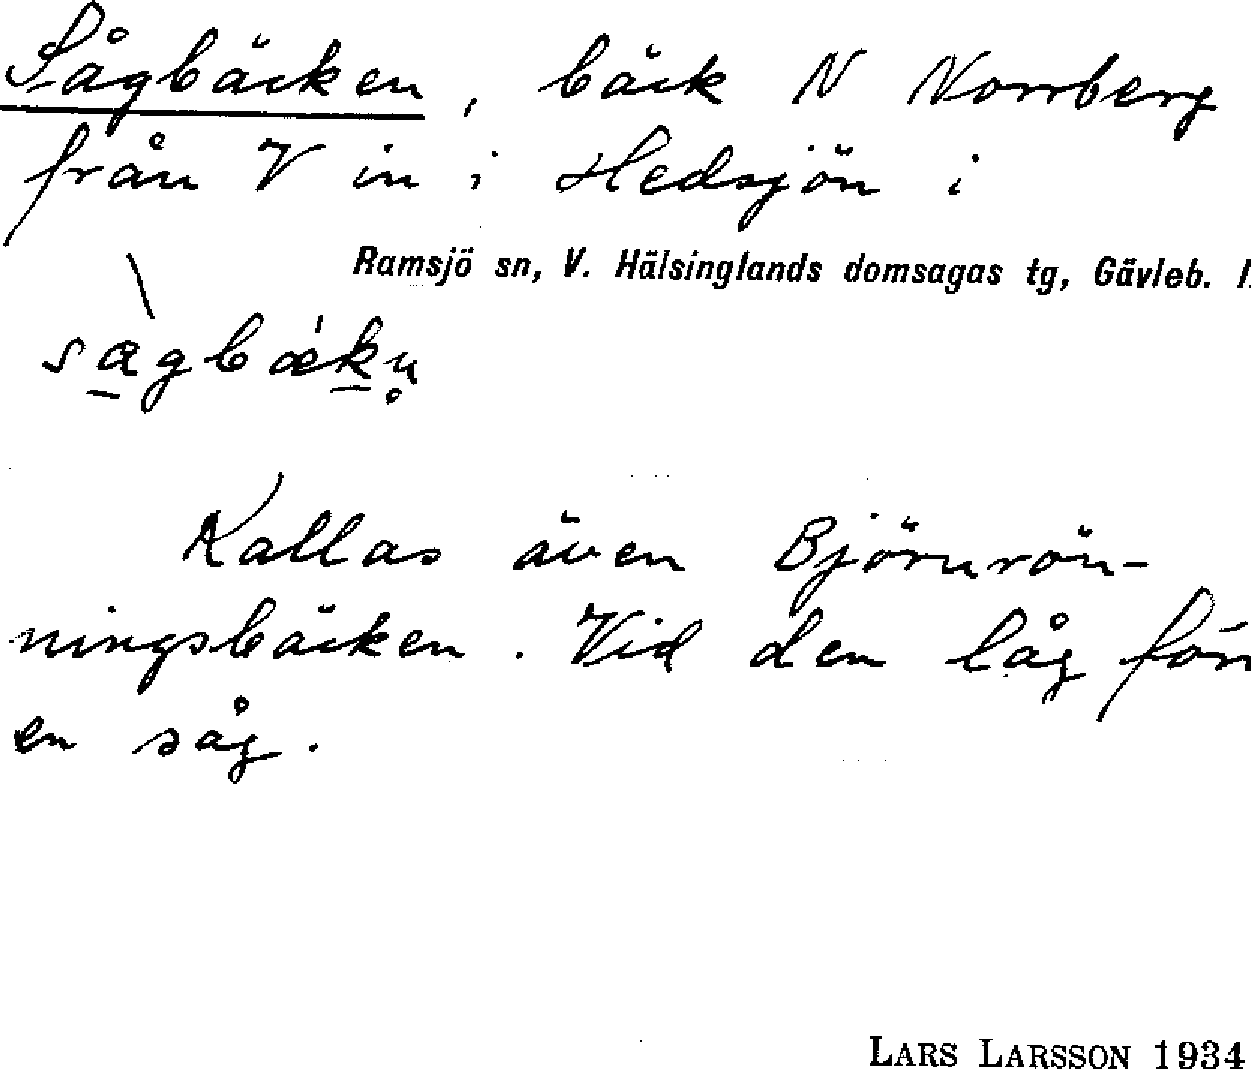 Sågbäcken, bäck N Norrberg
från V in i Hedsjön i
Ramsjö sn, V. Hälsinglands domsagas tg, Gävleb. l.
sàgbǽkn̥
Kallas även Björnrön-
ningsbäcken. Vid den låg förr
en såg.
LARS LARSSON 1934